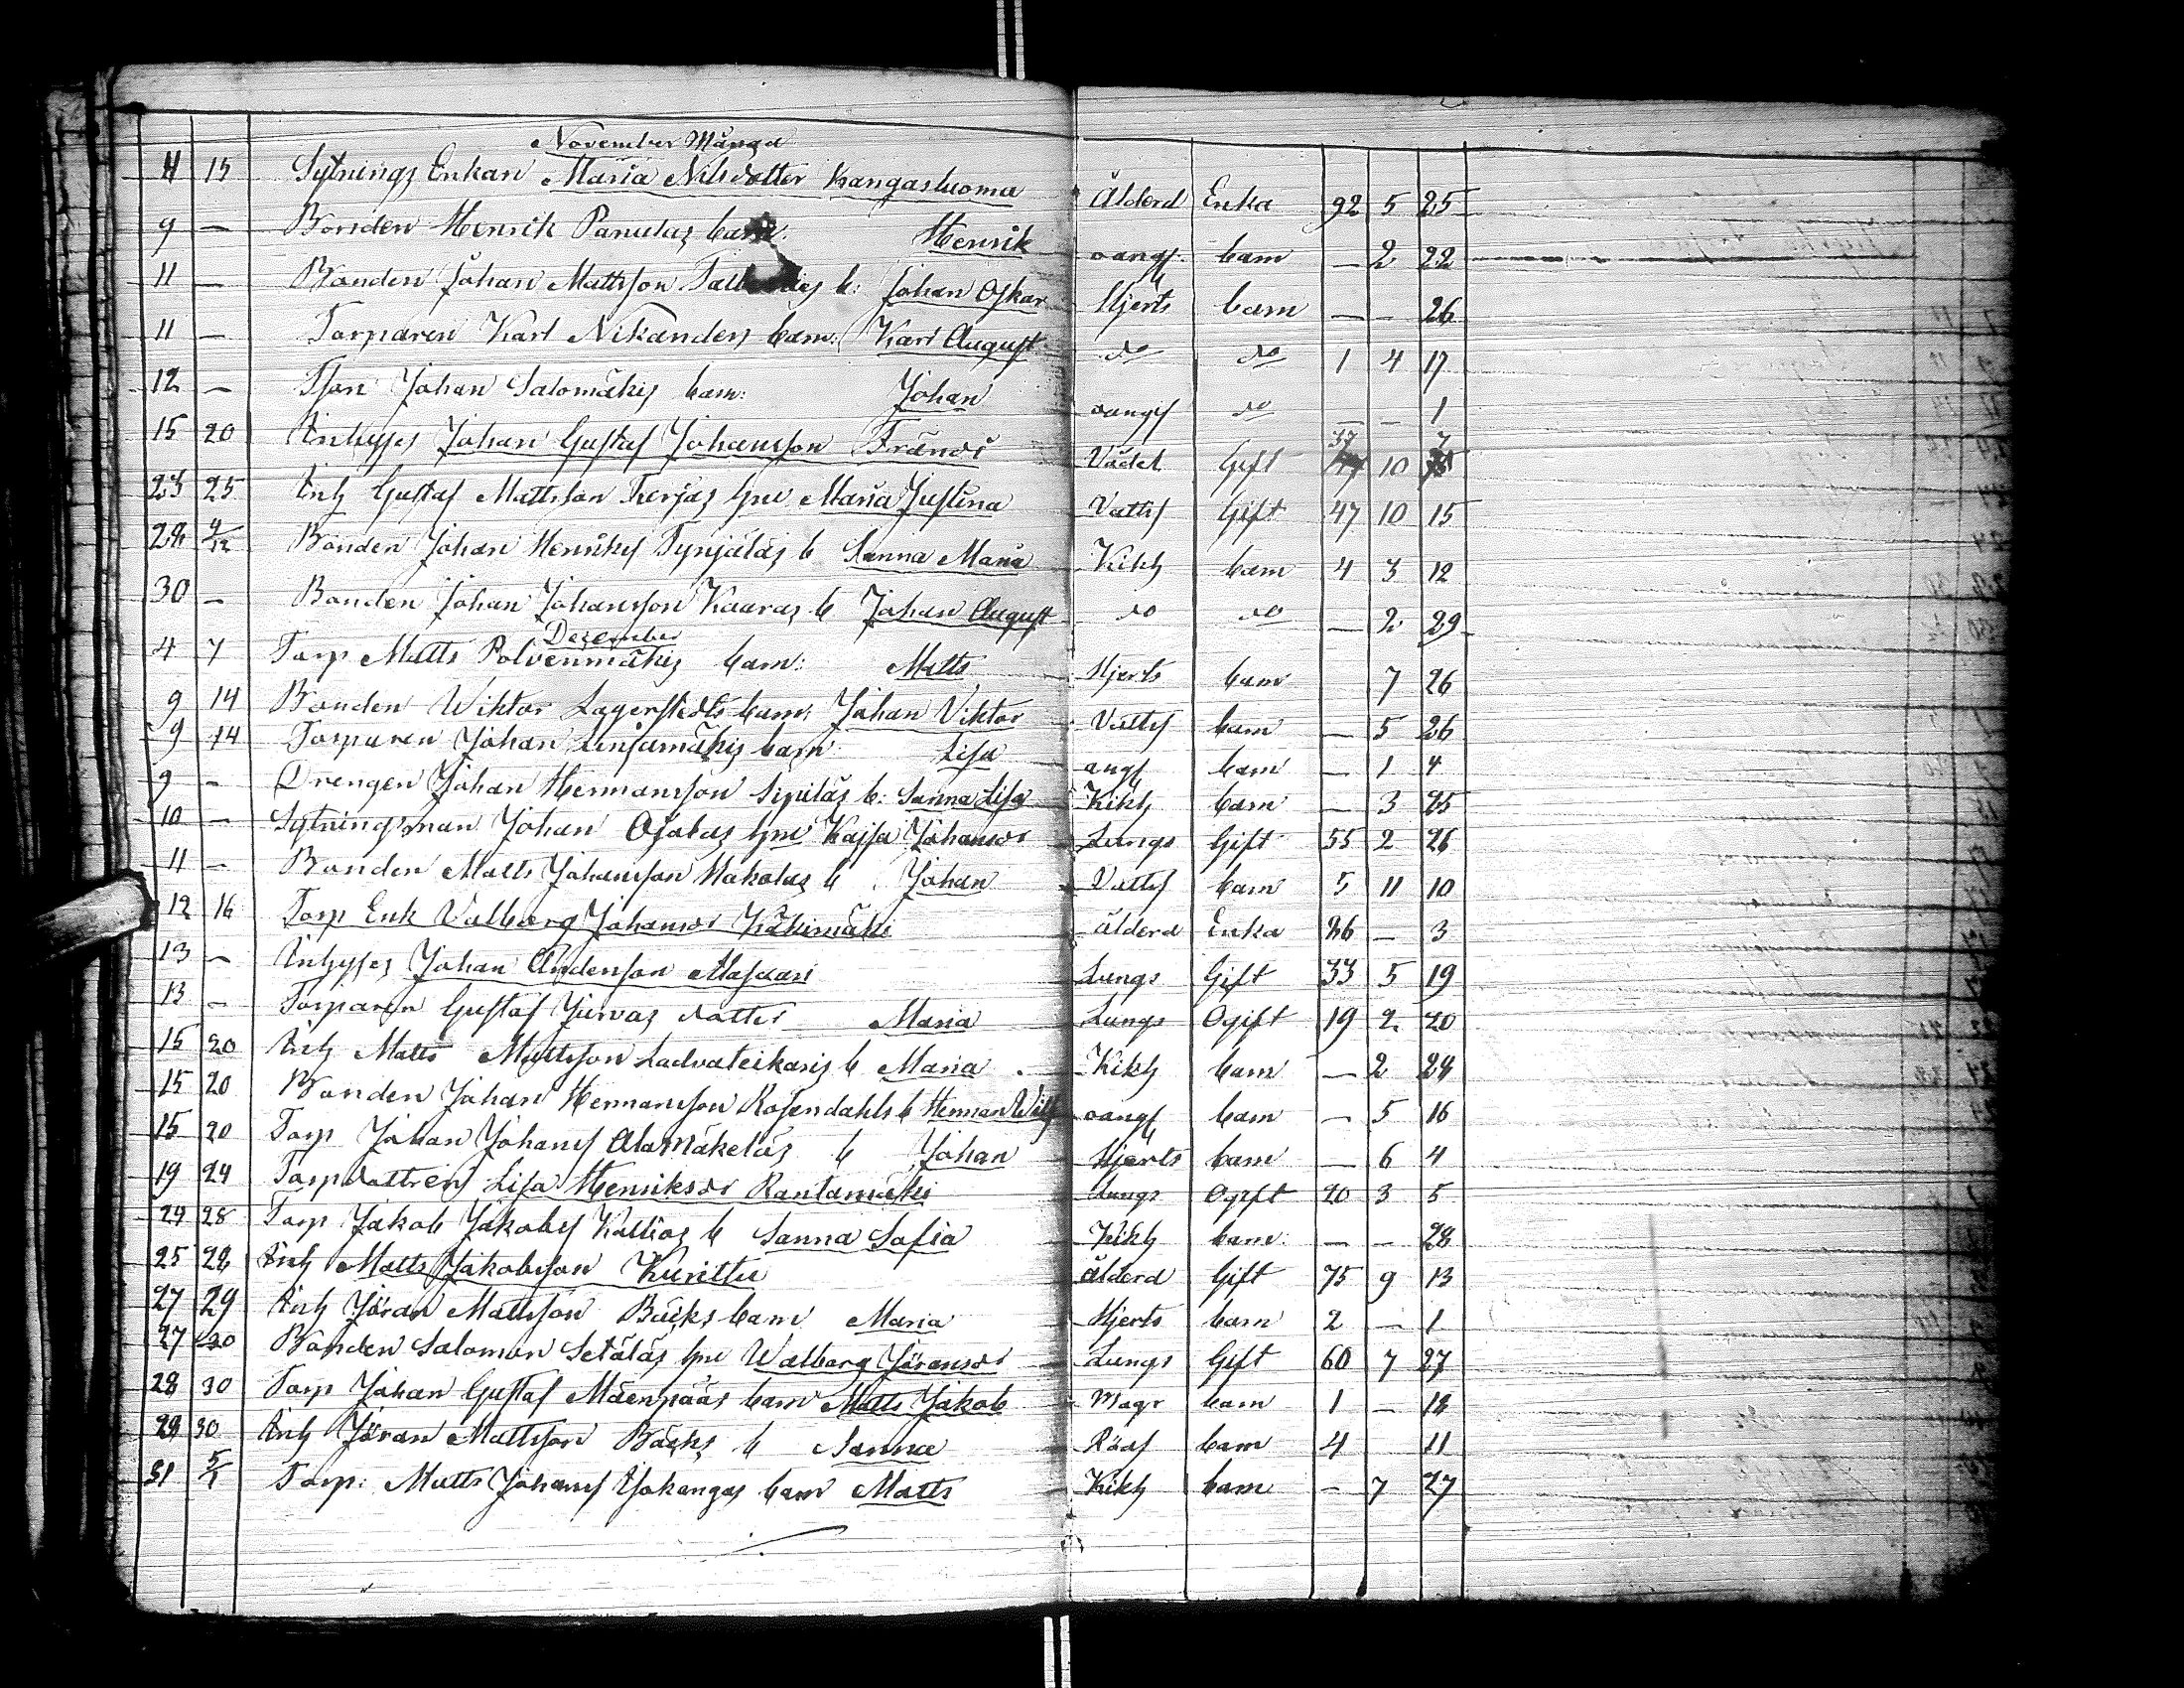 November Månad
4 15 Sytnings Enkan Maria Nilsdotter Kangasluoma Ålderd Enka 92 5 25
9 — Bonden Henrik Panulas barn: Henrik oangf barn — 2 22
11 — Bonden Johan Mattsson b: Johan Oskar Hjerts barn — — 26
11 — Torparen Karl Nikanders barn: Karl August do do 1 4 17
12 — Johan Salomäkis barn: Johan oangf do — — 1
15 20 Inhyses Johan Gustaf Johansson Frändi Vådel Gift 37 10 7
23 25 Inh Gustaf Mattsson Turjas hu Maria Justina Vattsf Gift 47 10 15
28 4/12 Bonden Johan Henriks Tynjäläs b Sanna Maria Kikh barn 4 3 12
30 — Bonden Johan Johansson Kaaras b Johan August do do — 2 29
Dezember
4 7 Torp Matts Polvenmäkis barn: Matts Hjerts barn 7 26
9 14 Bonden Wiktor Lagerstedts barn: Johan Viktor Vattsf barn — 5 26
9 14 Torparen Johan barn Lisa angf barn — 1 4
9 — Drengen Johan Hermansson Sipiläs b: Sanna Lisa Kikh barn — 3 25
10 — Sytningsman Johan Ojalas hu Kajsa Johansdr Lungs Gift 55 2 26
11 — Bonden Matts Johansson Hakolas b Johan Vattsf barn 5 11 10
12 16 Torp Enk Valborg Johansdr Käkimäki ålderd Enka 86 — 3
13 — Inhyses Johan Andersson Alasaari Lungs Gift 33 5 19
13 — Torparen Gustaf Jurvas dotter Maria Lungs Ogift 19 2 20
15 20 Inh Matts Mattsson Ladvateikaris b Maria Kikh barn — 2 24
15 20 Bonden Johan Hermansson Rosendahls b Herman Wilh oangf barn — 5 16
15 20 Torp Johan Johans Alamäkeläs b Johan Hjerts barn — 6 4
19 24 Torpdottren Lisa Henriksdr Rantamäki Lungs Ogift 20 3 5
24 28 Torp Jakob Jakobs Kallios b Sanna Sofia Kikh barn: — — 28
25 28 Inh Matts Jakobsson Kurittu ålderd Gift 75 9 13
27 29 Inh Jöran Mattsson Bäcks barn Maria Hjerts barn 2 — 1
27 30 Bonden Salomon Setäläs hu Walborg Jöransdr Lungs Gift 60 7 27
28 30 Torp Johan Gustaf Mäenpääs barn Matts Jakob Magr barn 1 — 18
29 30 Inh Jöran Mattsson Bäcks b Sanna Rödf barn 4 11
31 5/1 Torp: Matts Johans Yokangas barn Matts Kikh barn — 7 27